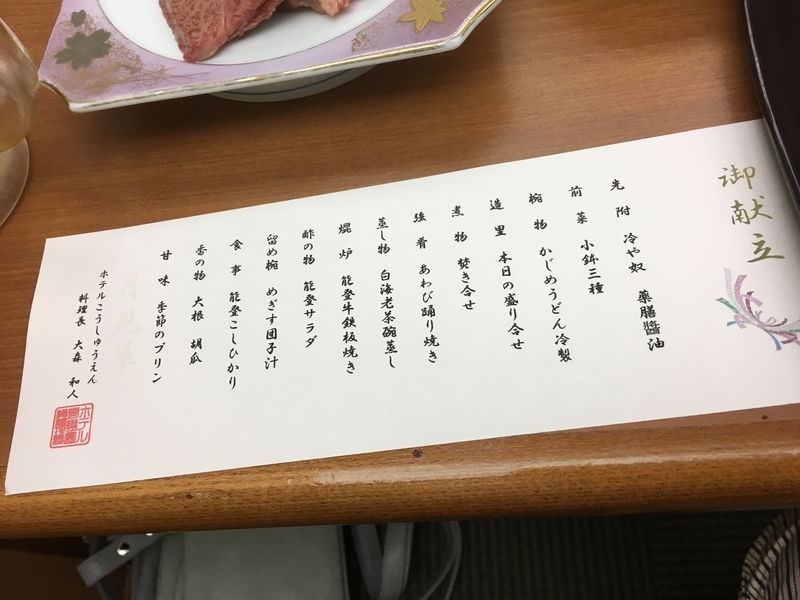 御献立
先附 冷や奴 薬膳醬油
前菜 小鉢三種
椀物 かじめうどん冷製
造里 本日の盛り合せ
煮物 焚き合せ
強肴 あわび踊り焼き
蒸し物 白海老茶碗蒸し
焜炉 能登牛鉄板焼き
酢の物 能登サラダ
留め椀 めぎす団子汁
食事 能登こしひかり
香の物 大根 胡瓜
甘味 季節のプリン
ホテルこうしゅうえん
料理長 大森 和人
ホテル